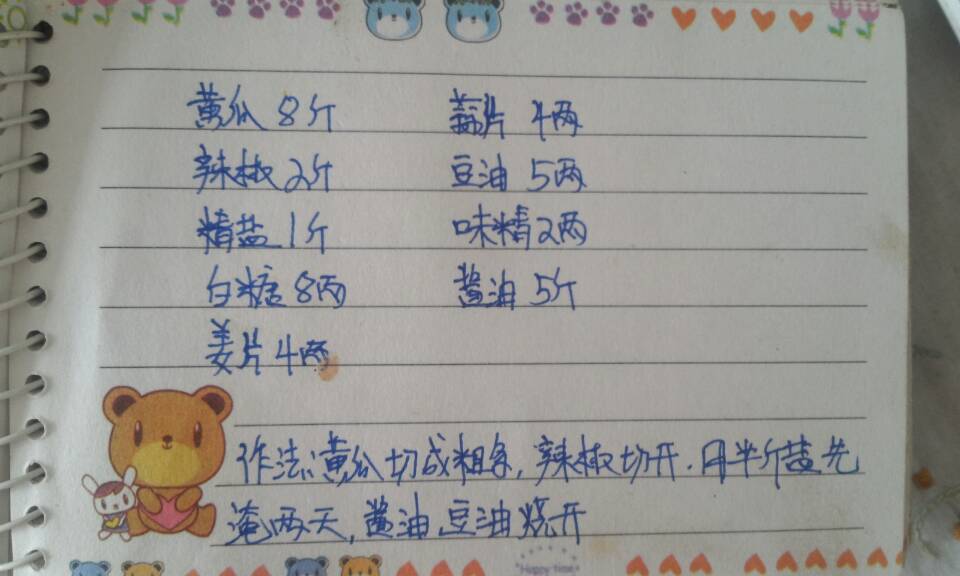 黄瓜 8斤 蒜片 4两
辣椒 2斤 豆油 5两
精盐 1斤 味精2两
白糖 8两 酱油 5斤
姜片 4两
作法:黄瓜切成粗条,辣椒切开.用半斤盐先
淹两天,酱油,豆油烧开
Happy time